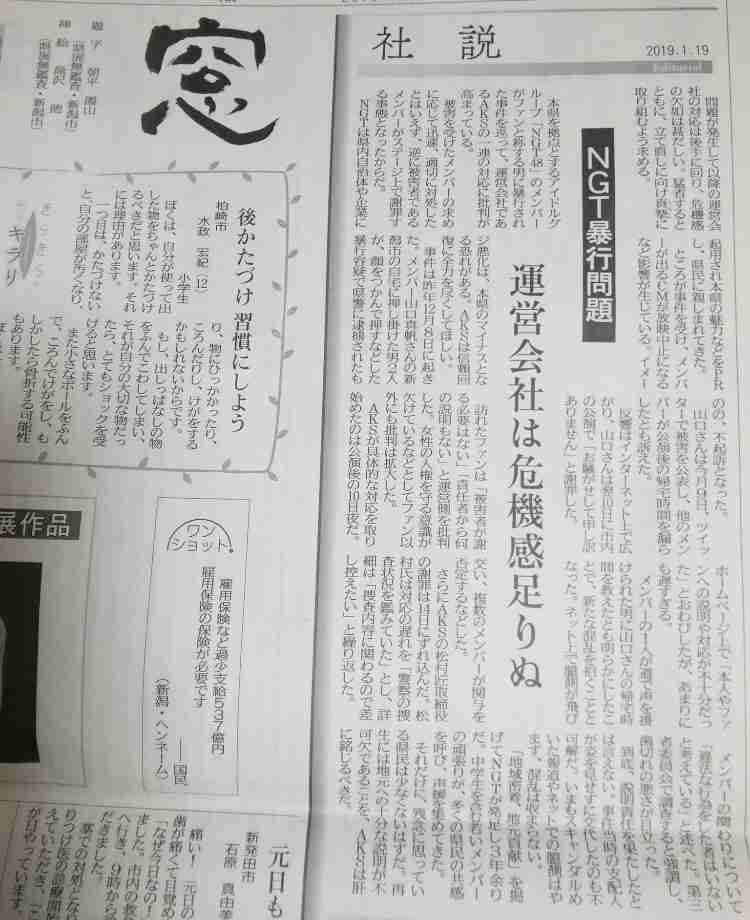 社説
2019.1.19
Editorial
問題が発生して以降の運営会
社の対応は後手に回り、危機感
の欠如は甚だしい。猛省すると
ともに、立て直しに向け真摯に
取り組むよう求める。
NGT暴行問題
運営会社は危機感足りぬ
本県を拠点とするアイドルグ
ループ「NGT48」のメンバー
がファンと称する男に暴行され
た事件を巡って、運営会社であ
るAKSの一連の対応に批判が
高まっている。
被害を受けたメンバーの求め
に応じて迅速、適切に対処した
とはいえず、逆に被害者である
メンバーがステージ上で謝罪す
る事態となったからだ。
NGTは県内自治体や企業に
起用され本県の魅力などをPR
し、県民に親しまれてきた。
ところが事件を受け、メンバ
ーが出るCMが放映中止になる
など影響が生じている。イメー
ジ悪化は、本県のマイナスとな
る恐れがある。AKSは信頼回
復に全力を尽くしてほしい。
事件は昨年12月8日に起き
た。メンバー山口真帆さんの新
潟市の自宅に押し掛けた男2人
が、顔をつかんで押すなどした
暴行容疑で県警に逮捕されたも
のの、不起訴となった。
山口さんは今月9日、ツイッ
ターで被害を公表し、他のメン
バーが公演後の帰宅時間を漏ら
したとも訴えた。
反響はインターネット上で広
がり、山口さんは翌10日に市内
の公演で「お騒がせして申し訳
ありません」と謝罪した。
訪れたファンは「被害者が謝
る必要はない」「責任者から何
の説明もない」と運営側を批判
した。女性の人権を守る意識が
欠けているなどとしてファン以
外にも批判は拡大した。
AKSが具体的な対応を取り
始めたのは公演後の10日夜だ。
ホームページ上で「本人やファ
ンへの説明や対応が不十分だっ
た」とおわびしたが、あまりに
も遅すぎる。
メンバーの1人が道で声を掛
けられた男に山口さんの帰宅時
間を教えたとも明らかにしたこ
とで、新たな混乱を招くことと
なった。ネット上で臆測が飛び
交い、複数のメンバーが関与を
否定するなどした。
さらにAKSの松村匠取締役
の謝罪は14日にずれ込んだ。松
村氏は対応の遅れを「警察の捜
査状況を鑑みていた」とし、詳
細は「捜査内容に関わるので差
し控えたい」と繰り返した。
メンバーの関わりについて
「違法な行為をした者はいない
と考えている」と述べた。第三
者委員会で調査すると強調し、
歯切れの悪さが目立った。
到底、説明責任を果たしたと
は言えない。事件当時の支配人
が姿を見せずに交代したのも不
可解だ。いまもスキャンダルめ
いた報道やネットでの臆測はや
まず、混乱は収まらない。
「地域密着、地元貢献」を掲
げてNGTが発足し3年余り
だ。中学生を含む若いメンバー
の頑張りが、多くの県民の共感
を呼び、声援を集めてきた。
それだけに、残念に思ってい
る県民は少なくないはずだ。再
生には地元への十分な説明が不
可欠であることを、AKSは肝
に銘じるべきだ。
窓
題字 朝平 園山
(県展無鑑査・新潟市)
挿絵
(県展無鑑査・新潟市)
きらきら
キラリ
後かたづけ 習慣にしよう
柏崎市
小学生
水政 宏紀(12)
ぼくは、自分が使って出
した物をちゃんとかたづけ
るべきだと思います。それ
には理由があります。
一つ目は、かたづけない
と、自分の部屋が汚くなり、
り、物にひっかかったり、
ころんだりし、けがをする
かもしれないからです。
もし、出しっぱなしの物
をふんでこわしてしまい、
それが自分の大切な物だっ
たら、とてもショックを受
けると思います。
また小さなボールをふん
で、ころんでけがをし、も
しかしたら骨折する可能性
もあります。
展作品
ワン
ショット
雇用保険など過少支給537億円
雇用保険の保険が必要です
――国民
(新潟・ペンネーム)
元日も
新発田市
石原 真由美
痛い! 元日の
歯が痛くて目覚め
「なぜ今日なの!
ました。市内の救
へ行き、9時から
だきました。
薬での対処とな
りつけ医の診療開始
えていただき、「こ
が日やっています。